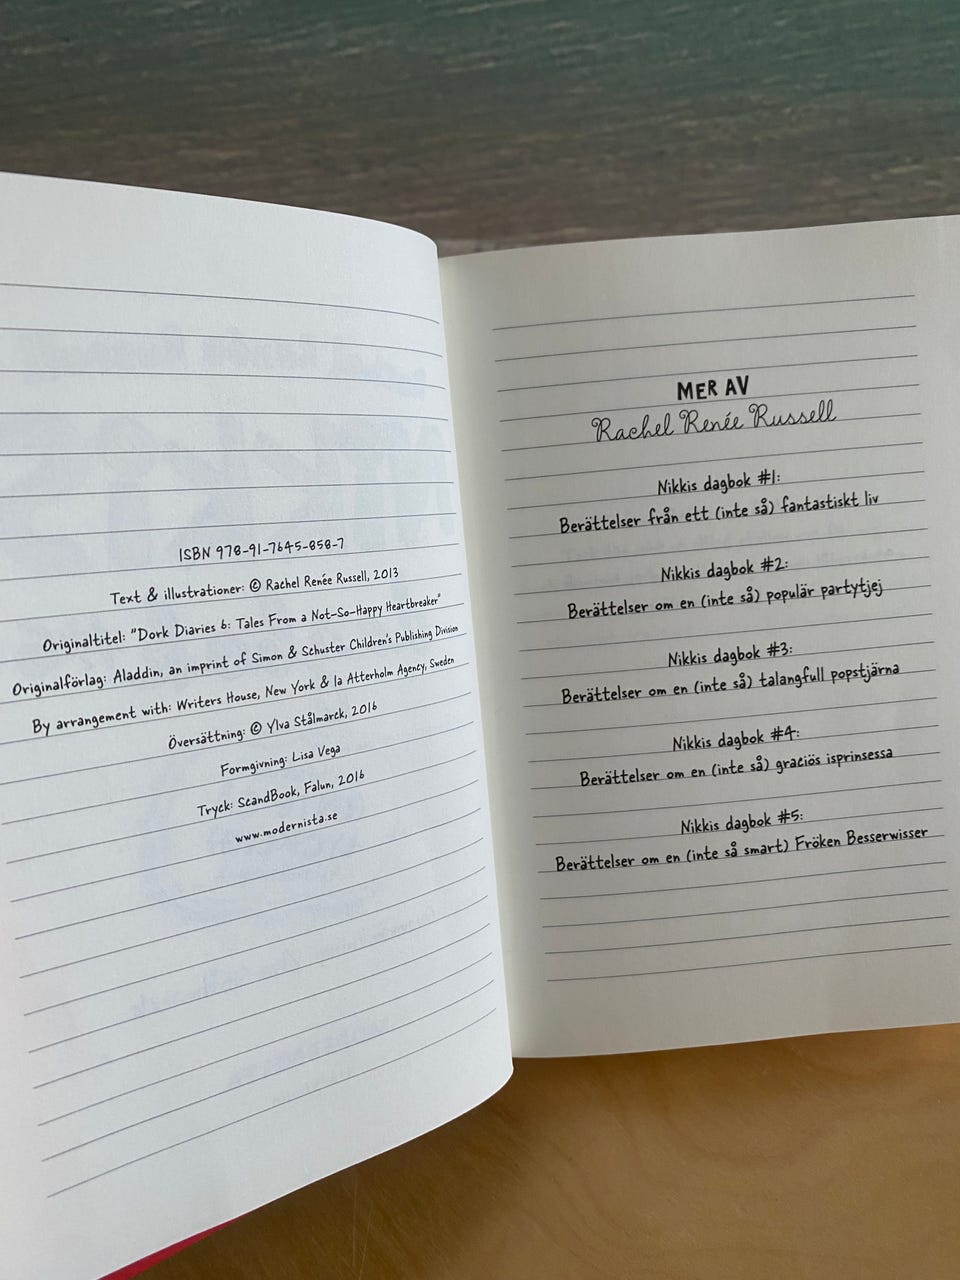 ISBN 978-91-7645-858-7
Text & illustrationer: © Rachel Renée Russell, 2013
Originaltitel: "Dork Diaries 6: Tales From a Not-So-Happy Heartbreaker"
Originalförlag: Aladdin, an imprint of Simon & Schuster Children's Publishing Division
By arrangement with: Writers House, New York & Ia Atterholm Agency, Sweden
Översättning: © Ylva Stålmarck, 2016
Formgivning: Lisa Vega
Tryck: ScandBook, Falun, 2016
www.modernista.se
MER AV
Rachel Renée Russell
Nikkis dagbok #1:
Berättelser från ett (inte så) fantastiskt liv
Nikkis dagbok #2:
Berättelser om en (inte så) populär partytjej
Nikkis dagbok #3:
Berättelser om en (inte så) talangfull popstjärna
Nikkis dagbok #4:
Berättelser om en (inte så) graciös isprinsessa
Nikkis dagbok #5:
Berättelser om en (inte så smart) Fröken Besserwisser